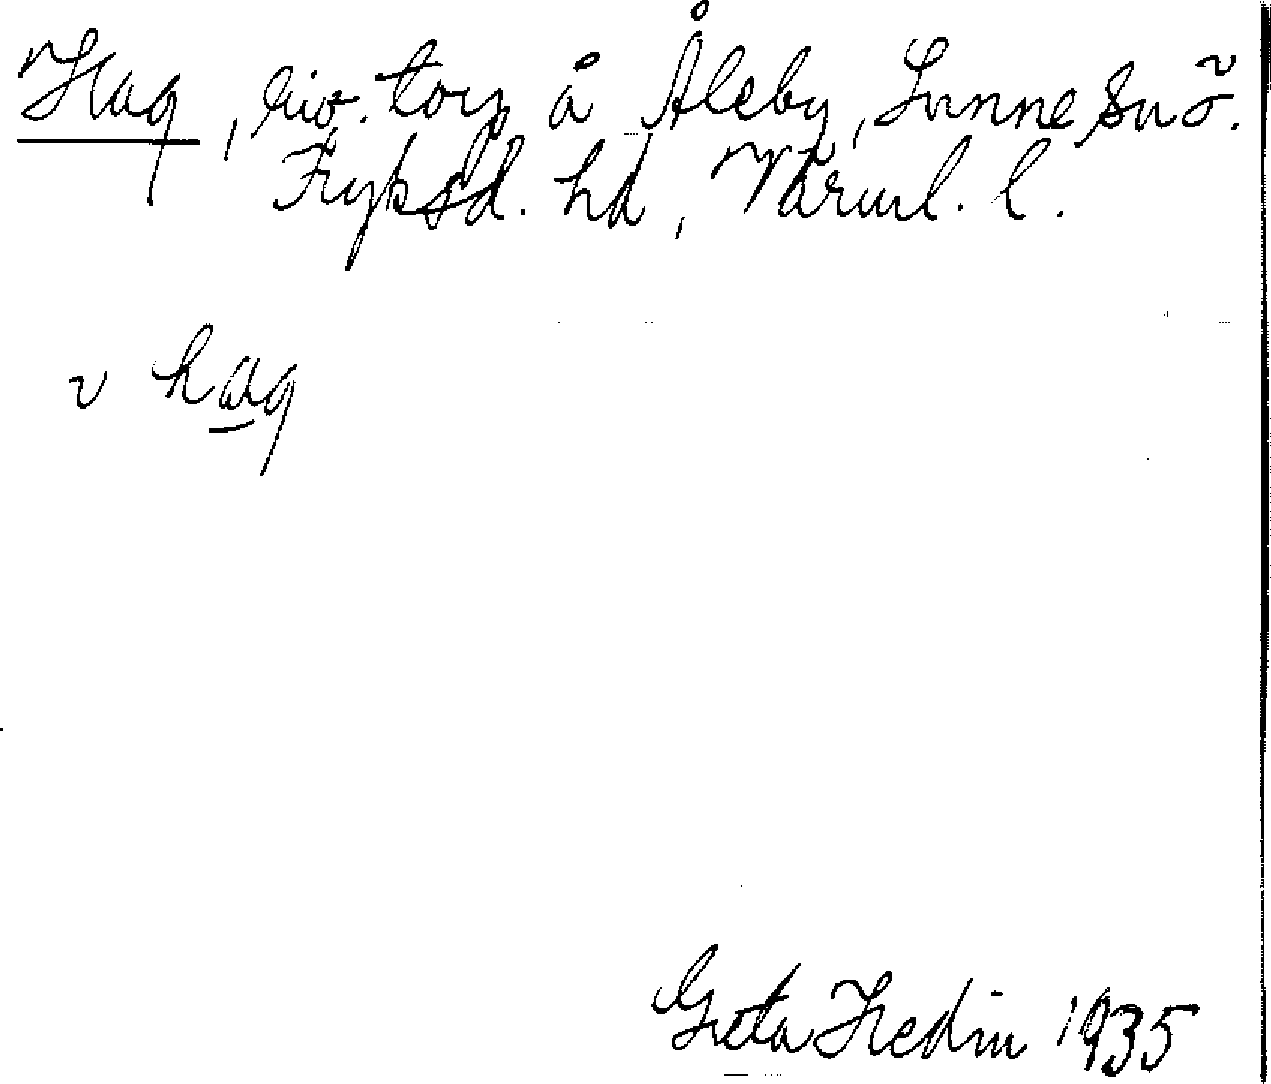 Hag, riv. torp å Åleby, Sunne sn ö.
Fryksd. hd, Värml. l.
v hag
Greta Hedin 1935